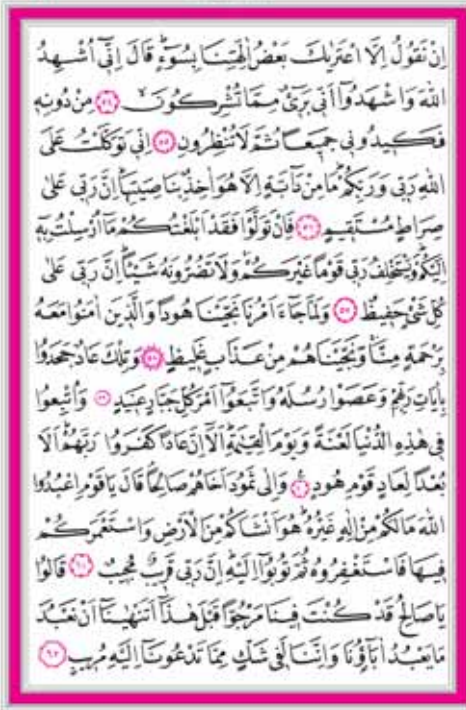 اِنْ نَقُولُ اِلَّا اعْتَرٰيكَ بَعْضُ اٰلِهَتِنَا بِسُوٓءٍۜ قَالَ اِنّ۪ٓي اُشْهِدُ
اللّٰهَ وَاشْهَدُٓوا اَنّ۪ي بَر۪ٓيءٌ مِمَّا تُشْرِكُونَۙ ﴿٥٤﴾ مِنْ دُونِه۪
فَك۪يدُون۪ي جَم۪يعًا ثُمَّ لَا تُنْظِرُونِ ﴿٥٥﴾ اِنّ۪ي تَوَكَّلْتُ عَلَى
اللّٰهِ رَبّ۪ي وَرَبِّكُمْۜ مَا مِنْ دَٓابَّةٍ اِلَّا هُوَ اٰخِذٌ بِنَاصِيَتِهَاۜ اِنَّ رَبّ۪ي عَلٰى
صِرَاطٍ مُسْتَق۪يمٍ ﴿٥٦﴾ فَاِنْ تَوَلَّوْا فَقَدْ اَبْلَغْتُكُمْ مَٓا اُرْسِلْتُ بِه۪ٓ
اِلَيْكُمْۜ وَيَسْتَخْلِفُ رَبّ۪ي قَوْمًا غَيْرَكُمْۚ وَلَا تَضُرُّونَهُ شَيْـًٔاۜ اِنَّ رَبّ۪ي عَلٰى
كُلِّ شَيْءٍ حَف۪يظٌ ﴿٥٧﴾ وَلَمَّا جَٓاءَ اَمْرُنَا نَجَّيْنَا هُودًا وَالَّذ۪ينَ اٰمَنُوا مَعَهُ
بِرَحْمَةٍ مِنَّاۚ وَنَجَّيْنَاهُمْ مِنْ عَذَابٍ غَل۪يظٍ ﴿٥٨﴾ وَتِلْكَ عَادٌ جَحَدُوا
بِاٰيَاتِ رَبِّهِمْ وَعَصَوْا رُسُلَهُ وَاتَّبَعُٓوا اَمْرَ كُلِّ جَبَّارٍ عَن۪يدٍ ﴿٥٩﴾ وَاُتْبِعُوا
ف۪ي هٰذِهِ الدُّنْيَا لَعْنَةً وَيَوْمَ الْقِيٰمَةِۜ اَلَٓا اِنَّ عَادًا كَفَرُوا رَبَّهُمْۜ اَلَا
بُعْدًا لِعَادٍ قَوْمِ هُودٍ ﴿٦٠﴾ وَاِلٰى ثَمُودَ اَخَاهُمْ صَالِحًاۢ قَالَ يَا قَوْمِ اعْبُدُوا
اللّٰهَ مَا لَكُمْ مِنْ اِلٰهٍ غَيْرُهُۜ هُوَ اَنْشَاَكُمْ مِنَ الْاَرْضِ وَاسْتَعْمَرَكُمْ
ف۪يهَا فَاسْتَغْفِرُوهُ ثُمَّ تُوبُٓوا اِلَيْهِۜ اِنَّ رَبّ۪ي قَر۪يبٌ مُج۪يبٌ ﴿٦١﴾ قَالُوا
يَا صَالِحُ قَدْ كُنْتَ ف۪ينَا مَرْجُوًّا قَبْلَ هٰذَٓا اَتَنْهٰينَٓا اَنْ نَعْبُدَ
مَا يَعْبُدُ اٰبَٓاؤُ۬نَا وَاِنَّنَا لَف۪ي شَكٍّ مِمَّا تَدْعُونَٓا اِلَيْهِ مُر۪يبٍ ﴿٦٢﴾